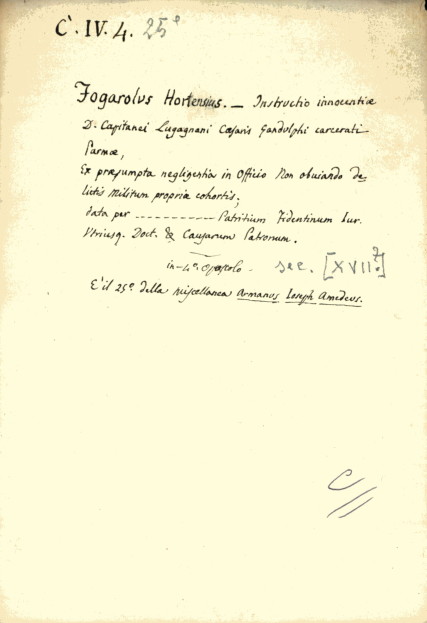 C. IV. 4. 25°
Fogarolus Hortensius. — Instructio innocentiæ
D. Capitanei Lugagnani Cæsaris Gandulphi carcerati
Parmæ,
Ex præsumpta negligentia in Officio Non obuiando de
lictis Militum propriæ cohortis;
data per ———— Patritium Fidentinum Iur.
Vtriusq. Doct. & Causarum Patronum.
in-4° opuscolo - sec. [XVII?]
E' il 25° della miscellanea Armanus Ioseph Amedeus.
C